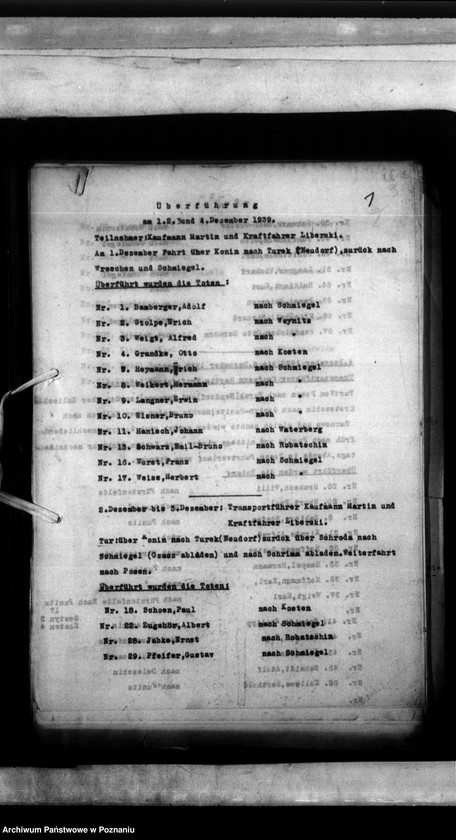 1
Überführung
am 1.2.3und 4.Dezember 1939.
Teilnehmer:Kaufmann Martin und Kraftfahrer Liberski.
Am 1.Dezember Fahrt über Konin nach Turek (Neudorf),zurück nach
Wreschen und Schmiegel.
Überführt wurden die Toten :
Nr. 1. Bamberger,Adolf nach Schmiegel
Nr. 2. Stolpe,Erich nach Woynitz
Nr. 3. Weigt, Alfred nach "
Nr. 4. Grandke, Otto nach Kosten
Nr. Heymann,Erich nach Schmiegel
Nr. 8. Weikert,Hermann nach "
Nr. 9. Langner,Erwin nach "
Nr. 10. Elsner,Bruno nach "
Nr. 11. Hanisch,Johann nach Waterberg
Nr. 13. Schwarz,Emil-Bruno nach Robatschin
Nr. 16. Wurst,Franz nach Schmiegel
Nr. 17. Weiss,Herbert nach "
2.Dezember bis 3.Dezember: Transportführer Kaufmann Martin und
Kraftfahrer Liberski.
Tur:über Konin nach Turek(Neudorf)zurück über Schroda nach
Schmiegel (Osesc abladen) und nach Schrimm abladen.Weiterfahrt
nach Posen.
Überführt wurden die Toten:
Nr. 18. Schoen,Paul nach Kosten
Nr. 22. Zugehör,Albert nach Schmiegel
Nr. 28. Jabke,Ernst nach Robatschin
Nr. 29. Pfeifer,Gustav nach Schmiegel
Archiwum Państwowe w Poznaniu